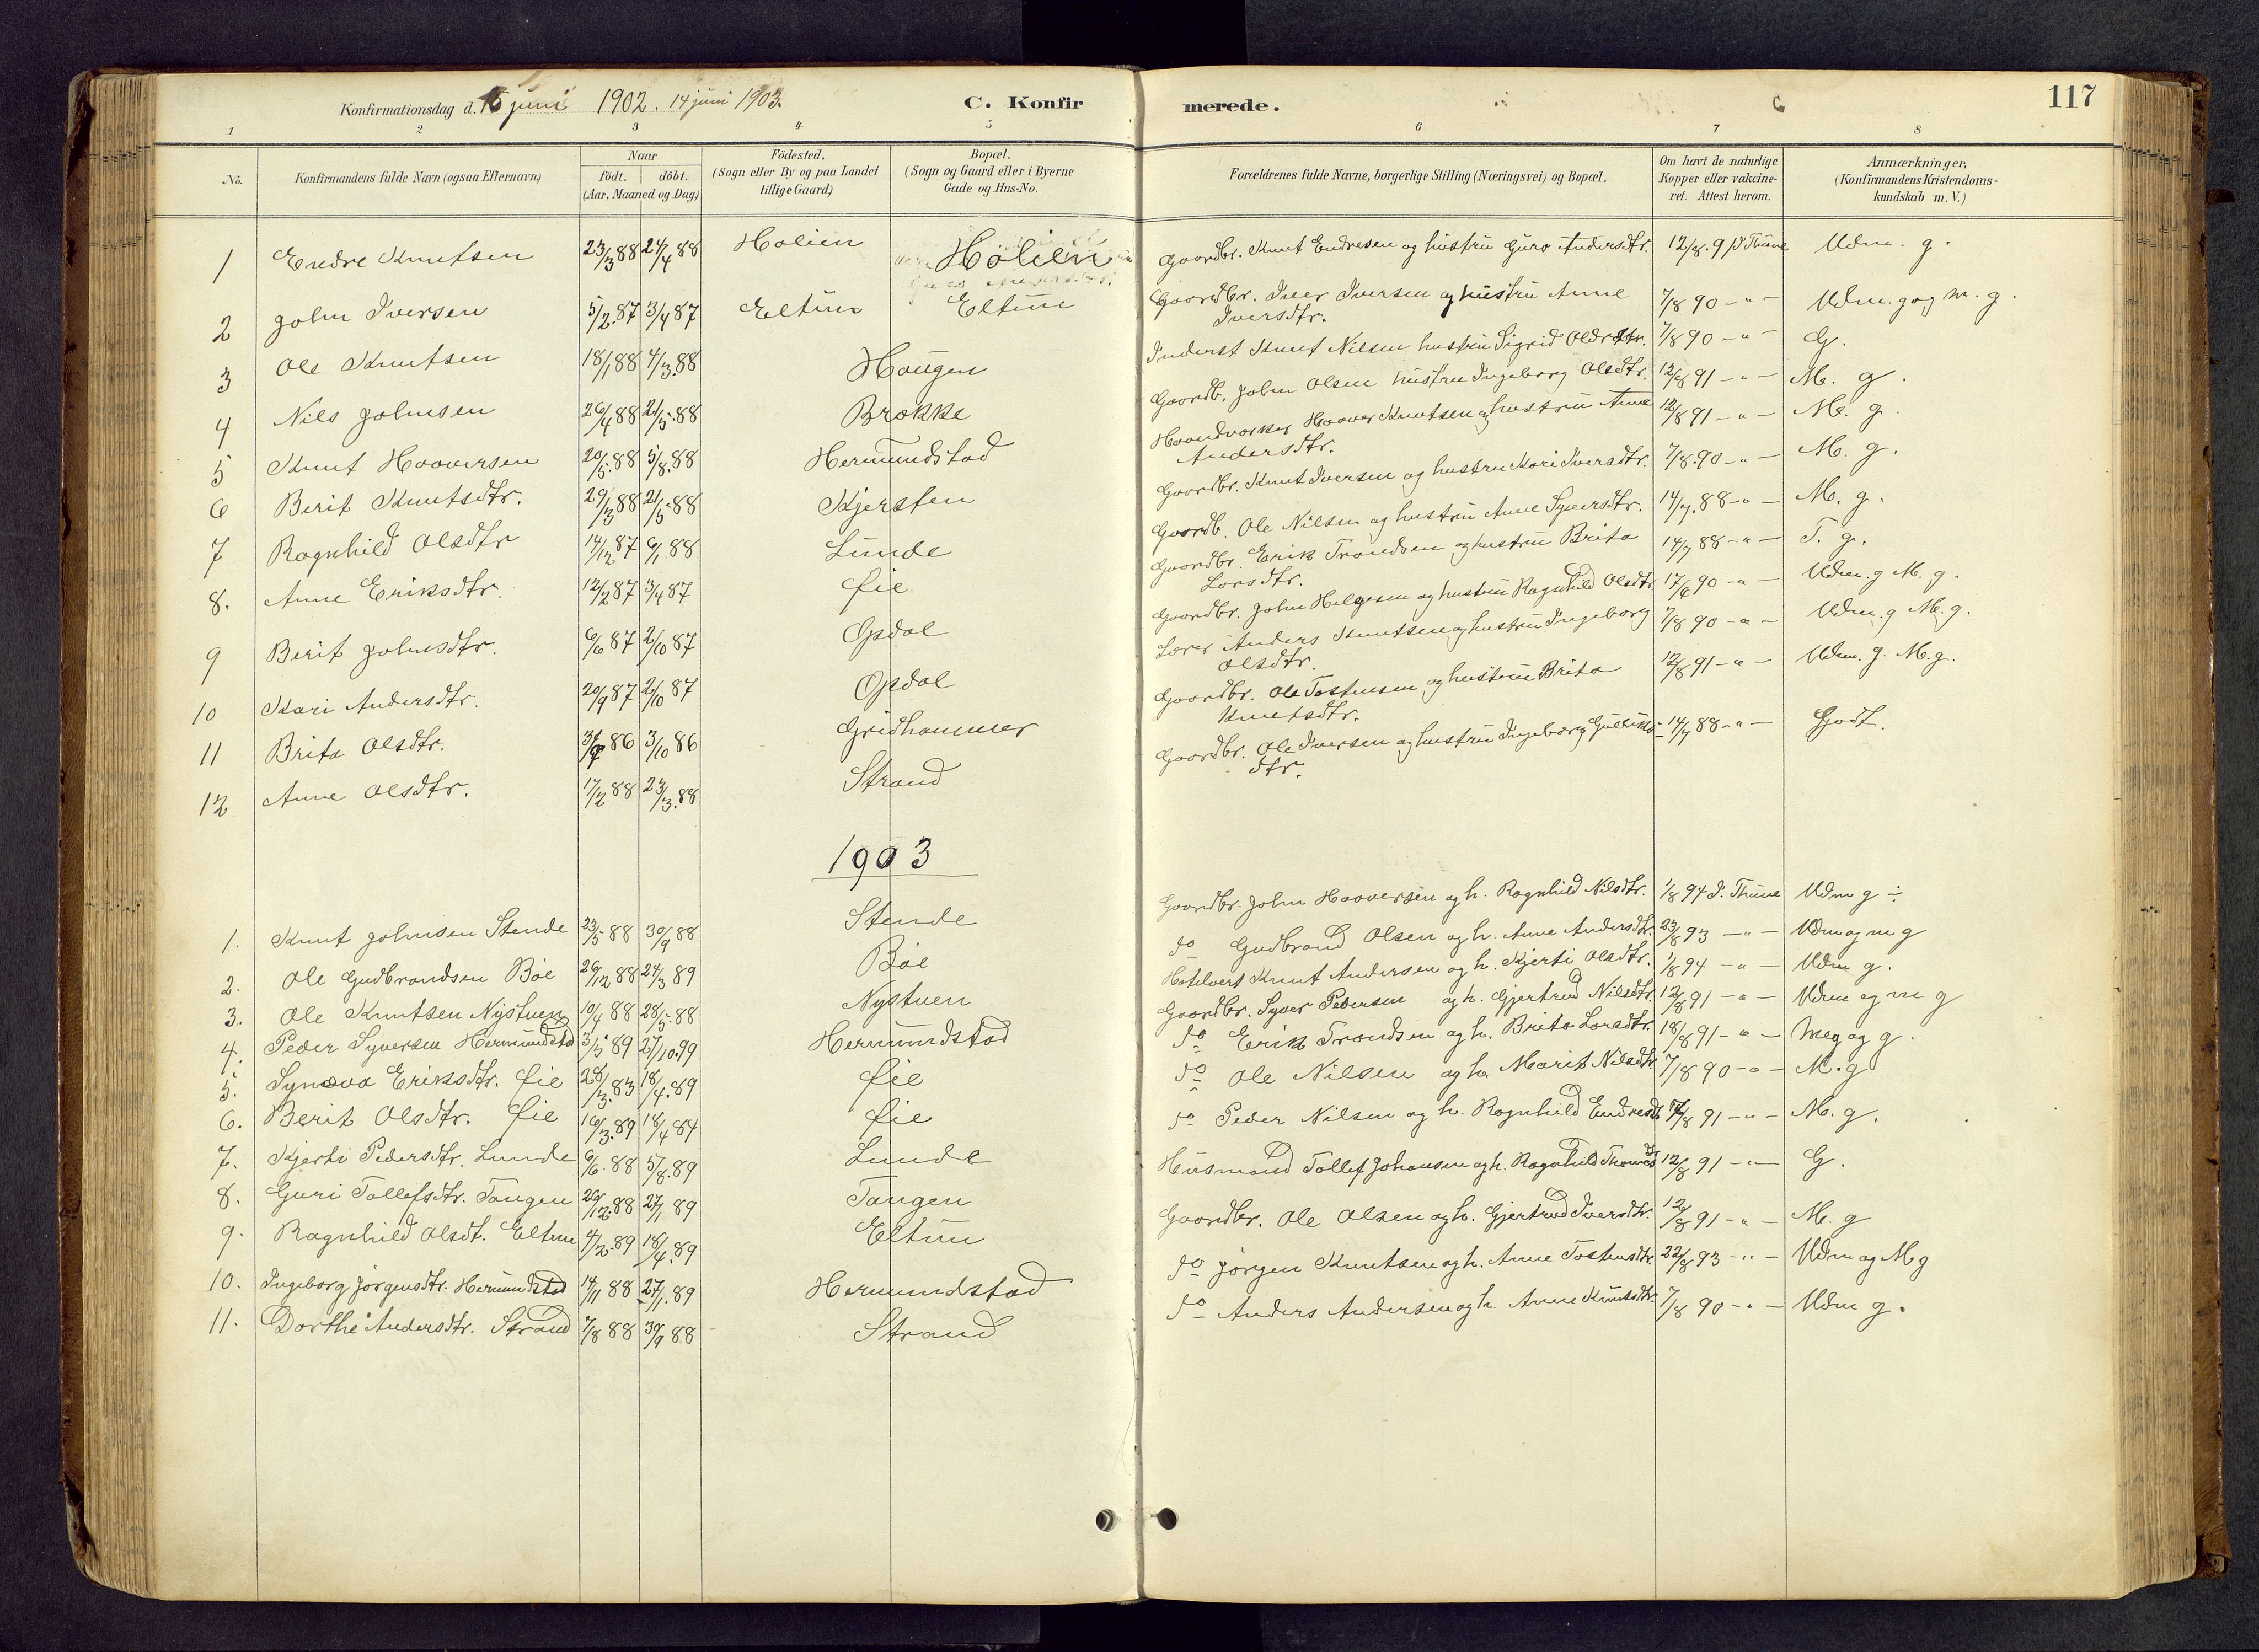 Konfirmationsdag d. 15 juni 1902. 14 juni 1903.
C. Konfirmerede.
117
1 2 3 4 5 6 7 8
No.
Konfirmandens fulde Navn (ogsaa Efternavn)
Naar
födt. döbt.
(Aar, Maaned og Dag)
Födested.
(Sogn eller By og paa Landet
tillige Gaard)
Bopæl.
(Sogn og Gaard eller i Byerne
Gade og Hus-No.
Forældrenes fulde Navne, borgerlige Stilling (Næringsvei) og Bopæl.
Om havt de naturlige
Kopper eller vakcine-
ret. Attest herom.
Anmærkninger,
(Konfirmandens Kristendoms-
kundskab m. V.)
1 Endre Knutsen 23/3 88 24/4 88 Holien Holien Gaardbr. Knut Endresen og hustru Guro Andersdtr. 12/8. 91 Thune Udm. g.
2 John Iversen 5/2. 87 3/4 87 Eltun Eltun Gaardbr. Iver Iversen og hustru Anne
Iversdtr. 7/8 90 - " - Udm. g og m. g.
3 Ole Knutsen 18/1 88 4/3. 88 Haugen Inderst Knut Nilsen hustru Sigrid Olsdtr. 7/8 90 - " - G.
4 Nils Johnsen 26/4 88 21/5. 88 Brække Gaardb. John Olsen hustru Ingeborg Olsdtr. 12/8 91 - " - M. g.
5 Knut Haaversen 20/5. 88 5/8. 88 Hermundstad Haandverker Haaver Knutsen og hustru Anne
Andersdtr. 12/8 91 - " - M. g.
6 Berit Knutsdtr. 29/3 88 21/5 88 Kjersten Gaardbr. Knut Iversen og hustru Kari Iversdtr. 7/8. 90 - " - M. g.
7 Ragnhild Olsdtr 14/12 87 6/1 88 Lunde Gaardb. Ole Nilsen og hustru Anne Syversdtr. 14/7. 88 - " - M. g.
8. Anne Eriksdtr. 12/2 87 3/4 87 Øie Gaardbr. Erik Trondsen og hustru Brita
Larsdtr. 14/7 88 - " - T. g.
9 Berit Johnsdtr. 6/6 87 2/10 87 Opdal Gaardbr. John Helgesen og hustru Ragnhild Olsdtr. 17/6 90 - " - Udm. g M. g.
10 Kari Andersdtr. 20/9 87 2/10 87 Opdal Lærer Anders Knutsen og hustru Ingeborg
Olsdtr. 7/8 90 - " - Udm. g M. g.
11 Brita Olsdtr. 86 3/10 86 Gridhammer Gaardbr. Ole Tostensen og hustru Brita
Knutsdtr. 12/8 91 - " - Udm. g. M. g.
12 Anne Olsdtr. 17/2 88 23/3. 88 Strand Gaardbr. Ole Iversen og hustru Ingeborg Gulliks-
dtr. 14/7 88 - " - Godt.
1903
1. Knut Johnsen Stende 23/5 88 30/9 88 Stende Gaardbr. John Haaversen og h. Ragnhild Nilsdtr. 1/8 94 J. Thune Udm g ÷
2. Ole Gudbrandsen Bøe 26/12 88 24/3 89 Bøe do Gudbrand Olsen og h. Anne Andersdtr. 23/8 93 - " - Udm og m g
3. Ole Knutsen Nystuen 10/4 88 28/5. 88 Nystuen Hotelvert Knut Andersen og h. Kjerti Olsdtr. 1/8 94 - " - Udm g.
4. Peder Syversen Hermundstad 3/5 89 27/10. 99 Hermundstad Gaardbr. Syver Pedersen og h. Gjertrud Nilsdtr. 12/8 91 - " - Udm og m g
5. Synøva Eriksdtr. Øie 28/3. 83 18/4. 89 Øie do Erik Trondsen og h. Brita Larsdtr. 18/8 91 - " - Meg og g.
6. Berit Olsdtr. Øie 16/3. 89 18/4 84 Øie do Ole Nilsen og h. Marit Nilsdtr 7/8 90 - " - M. g
7. Kjerti Pedersdtr. Lunde 6/6. 88 5/8. 89 Lunde do Peder Nilsen og h. Ragnhild Endresdt 91 - " - M. g.
8. Guri Tollefsdtr. Tangen 26/12. 88 27/1 89 Tangen Husmand Tollef Johansen og h. Ragnhild 12/8 91 - " - G.
9. Ragnhild Olsdt. Eltun 4/2. 89 18/4. 89 Eltun Gaardbr. Ole Olsen og h. Gjertrud Iversdtr. 12/8 91 - " - M. g
10. Ingeborg Jørgensdtr. Hermundstad 14/11 88 27/1. 89 Hermundstad do Jørgen Knutsen og h. Anne Tostensdtr. 22/8 93 - " - Udm og M g
11. Dorthe Andersdtr. Strand 7/8 88 30/9 88 Strand do Anders Andersen og h. Anne Knutsdtr. 7/8 90 - " - Udm g.